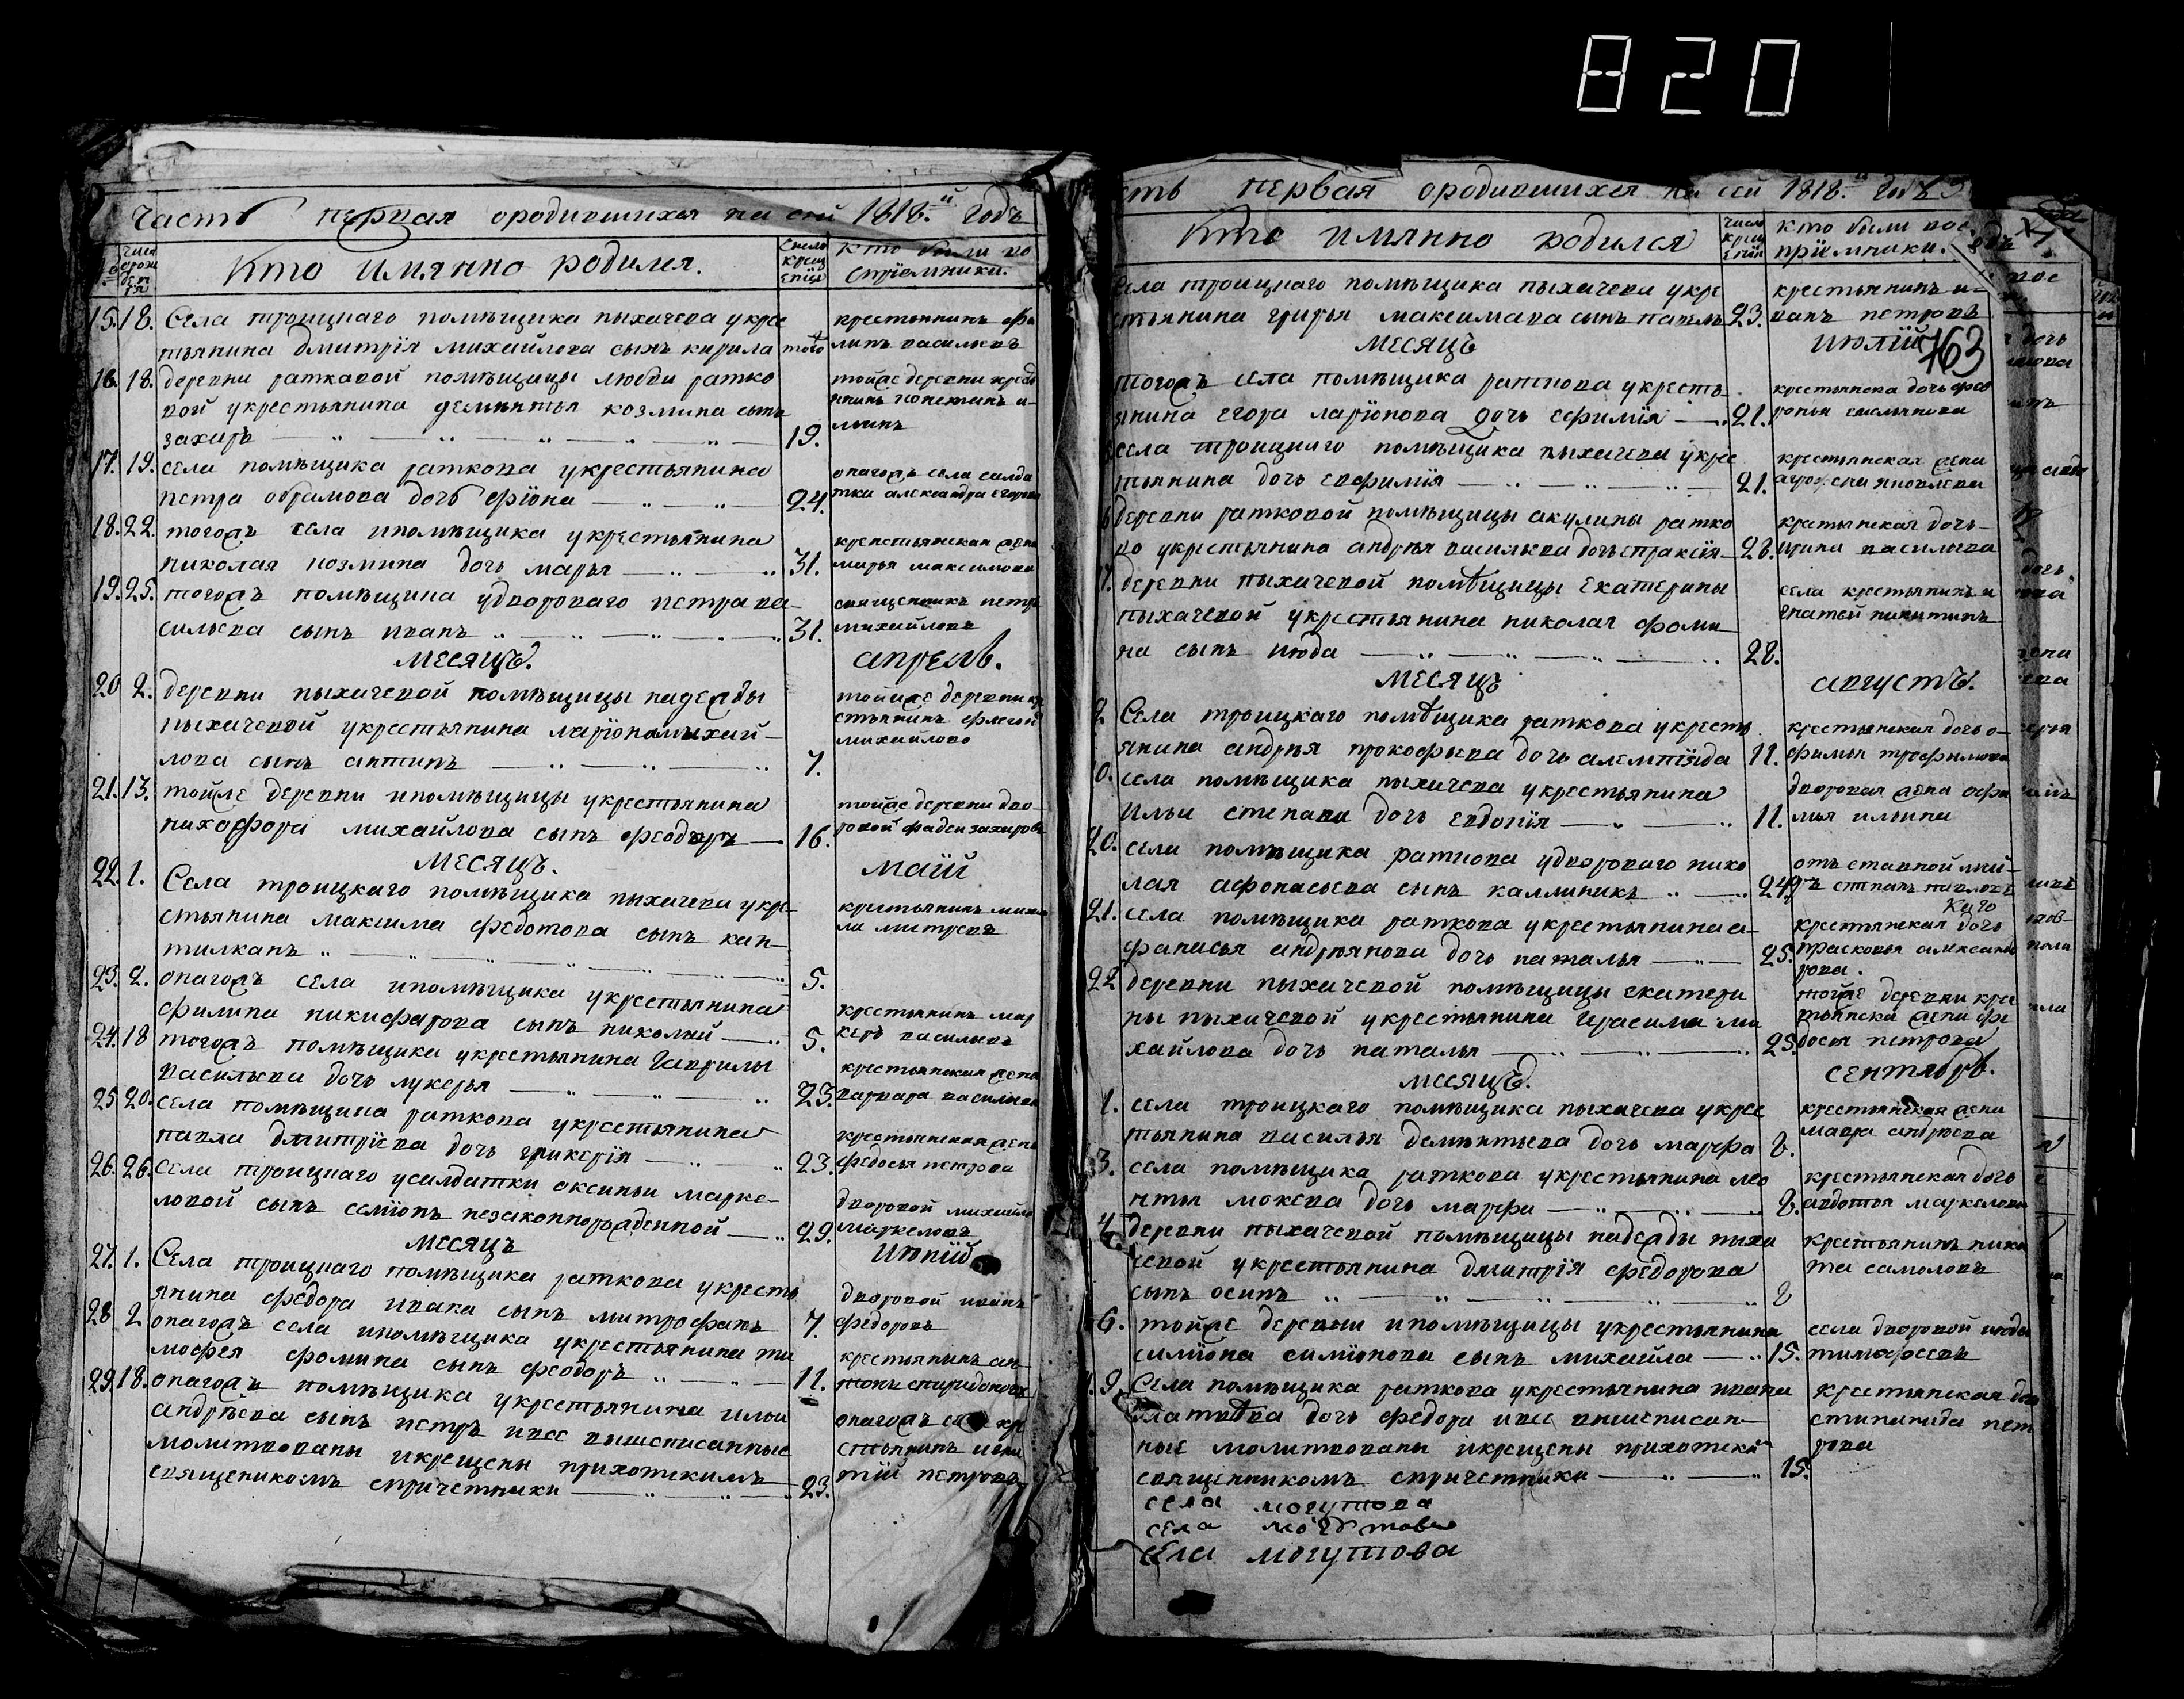 820
часть первая ородившихся на сей 1818.й годъ
числ орож дения
Кто имянно родился.
Число крещ ения
кто были во
сприемники.
15. 18. Села троицкаго помѣщика пыхачева укрес
тьянина дмитрiя михайлова сынъ кирила того
крестьянинъ фи
липъ васильевъ
16. 18. деревни раткавой помѣщицы любви ратко
вой укрестьянина дементья козмина сынъ
захаръ 19.
тойже деревни крес
17. 19. села помѣщика раткова укрестьянина
петра обрамова дочь фiона 24.
онагожъ села солда
тка александра егорова
18. 22. тогожъ села ипомѣщика укрестьянина
николая козмина дочь марья 31.
крепстьянская жена
марья максимова
19. 25. тогожъ помѣщика удвороваго петра ва
сильева сынъ иванъ 31.
священникъ петръ
михайловъ
месяцъ. апрель.
20 2. деревни пыхачевой помѣщицы надежды
пыхачевой укрестьянина ларiона михай
лова сынъ антипъ 7.
тойже деревни кр
стьянинъ
михайлово
21. 13. тойже деревни ипомѣщицы укрестьянина
никофора михайлова сынъ феодоръ 16.
тойже деревни дво
ровой фадеи захаровъ
месяцъ. маiй
22. 1. Села троицкаго помѣщика пыхачева укре
стьянина максима федотова сынъ кан
тилианъ 5.
крестьянинъ
ла митревъ
23. 2. онагожъ села ипомѣщика укрестьянина
филипа никифарова сынъ николай 5.
крестьянинъ мар
келъ васильевъ
24. 18 тогожъ помѣщика укрестьянина гаврилы
васильева дочь лукерья 23.
крестьянская жена
варвара васильева
25 20. села помѣщика раткова укрестьянина
павла дмитрiева дочь гликерiя 23.
крестьянская жена
федосья петрова
26. 26. села троицкаго усалдатки оксиньи марке
ловой сынъ семiонъ незаконнорожденной 29.
дворовой михайло
маркеловъ
месяцъ июнiй
27. 1. Села троицкаго помѣщика раткова укресть
янина федора ивана сынъ митрофанъ 7.
дворовой иванъ
федоровъ
28 2 онагожъ села ипомѣщика укрестьянина ти
мофея фомина сынъ феодоръ 11.
крестьянинъ ан
тонъ спиридоновъ
29. 18. онагожъ помѣщика укрестьянина ильи
андрѣева сынъ петръ ивсе вышеписанные
молитвованы икрещены прихотскимъ
священикомъ спричетники 23.
онагожъ кр
стьянинъ
тiй петровъ
сть первая ородившихся на сей 1818.й годъ
Кто имянно родился
Число крещ ения
кто были вос
приемники.
села троицкаго помѣщика пыхачева укре
стьянина григрья максимава сынъ павелъ 23.
крестьянинъ и
ванъ петровъ
месяцъ июлiй
763
тогожъ села помѣщика раткова укресть
янина егора ларiонова дочь ефимiя 21.
села троицкаго помѣщика пыхачева укрес
тьянина дочь евфимiя 21.
крестьянская жена
агрофена яковлева
деревни раткавой помѣщицы акулины ратко
во укрестьянина андрѣя васильева дочь праксiя 28.
крстьянская дочь
ирина васильева
7. деревни пыхачевой помѣщицы екатерины
пыхачевой укрестьянина николая фоми
на сынъ июда 28.
села крестьянинъ и
гнатей никитинъ
месяцъ августъ.
9. Села троицкаго помѣщика раткова укресть
янина андрѣя прокофьева дочь 11.
крестьянская дочь о
фимья трофимова
0. села помѣщика пыхачева укрестьянина
ильи степава дочь евдокiя 11.
дворовая жена офи
мья ильина
20. села помѣщика раткова удвороваго нико
лая афонасьева сынъ каллиникъ 24.
отъставной
степанъ павловъ
21. села помѣщика раткова укрестьянина а
фанасья андрѣянова дочь наталья 25.
крестьянская дочь
прасковья александ
рова.
22 деревни пыхачевой помѣщицы екатери
ны пыхачевой укрестьянина герасима ми
хайлова дочь наталья 25.
тойже деревни крес
тьянска жена фе
досья петрова
месяцъ. сентябрь.
1. села троицкаго помѣщика пыхачева укрес
тьянина василья дементьева дочь марфа 8.
крестьянская жена
мавра андрѣева
3. села помѣщика раткова укрестьянина лео
нтья мокева дочь марфа 8.
крестьянская дочь
авдотья маркелова
4. деревни пыхачевой помѣщицы надежды пыха
чевой укрестьянина дмитрiя федорова
сынъ осипъ 8
крестьянинъ ники
та самоловъ
6. тойже деревни ипомѣщицы укрестьянина
симiона симiонова сынъ михайла 15.
села дворовой
тимофеевъ
9. Села помѣщика раткова укрестьянина ивана
дочь федора ивсе вышеписан
ные молитвованы икрещены прихотскимъ
священникомъ спричетники 15.
крестьянская доч
степанида пет
рова
села могутова
села
села могутова